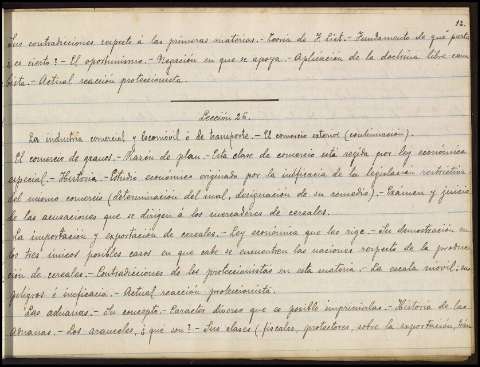 12.
Sus contradicciones respecto á las primeras materias.- Teoría de F. List.- Fundamento de qué parte
es cierto?- El oportunismo.- Negación en que se apoya.- Aplicación de la doctrina libre cam-
bista.- Actual reacción proteccionista.
Lección 26.
La industria comercial y locomóvil ó de transporte.- El comercio exterior (continuación).
El comercio de granos.- Razón de plan.- Esta clase de comercio está regida por ley económica
especial.- Historia.- Estudio económico originado por la ineficacia de la legislación restrictiva
del mismo comercio (determinación del mal, designación de su remedio).- Exámen y juicio
de las acusaciones que se dirigen á los mercaderes de cereales.
La importación y exportación de cereales.- Ley económica que las rige.- Su demostración en
los tres únicos posibles casos en que cabe se encuentren las naciones respecto de la produc-
ción de cereales.- Contradicciones de los proteccionistas en esta materia.- La escala móvil, sus
peligros é ineficacia.- Actual reacción proteccionista.
Las aduanas.- Su concepto.- Carácter diverso que es posible imprimirlas.- Historia de las
aduanas.- Los aranceles, ¿qué son?- Sus clases (fiscales, protectores, sobre la exportación,